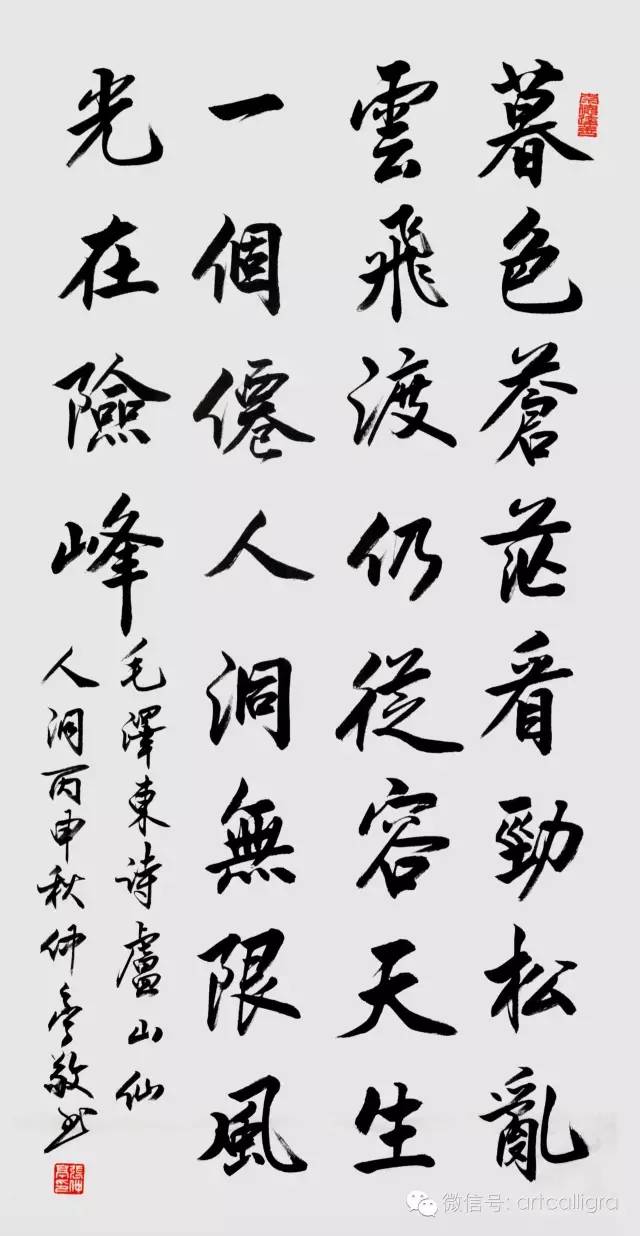 暮色蒼茫看勁松亂
雲飛渡仍從容天生
一個僊人洞無限風
光在險峰
毛澤東詩盧山仙
人洞丙申秋仲亭敬书
微信号: artcalligra